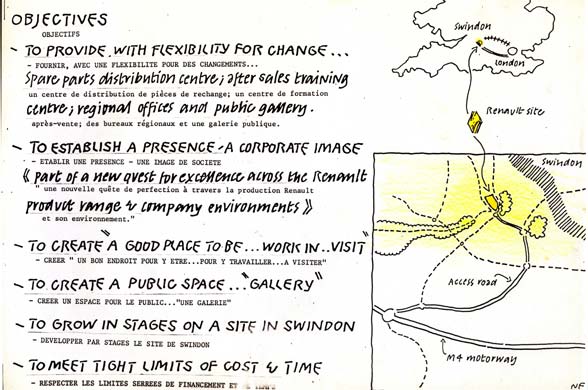 OBJECTIVES
OBJECTIFS
- TO PROVIDE WITH FLEXIBILITY FOR CHANGE...
- FOURNIR, AVEC UNE FLEXIBILITE POUR DES CHANGEMENTS...
Spare parts distribution centre; after sales training
un centre de distribution de pièces de rechange; un centre de formation
centre; regional offices and public gallery.
après-vente; des bureaux régionaux et une galerie publique.
- TO ESTABLISH A PRESENCE - A CORPORATE IMAGE
- ETABLIR UNE PRESENCE - UNE IMAGE DE SOCIETE
《 part of a new quest for excellence across the Renault
" une nouvelle quête de perfection à travers la production Renault
product range & company environments 》
et son environnement."
- TO CREATE "A GOOD PLACE TO BE...WORK IN..VISIT"
- CREER " UN BON ENDROIT POUR Y ETRE...POUR Y TRAVAILLER...A VISITER"
- TO CREATE A PUBLIC SPACE..."GALLERY"
- CREER UN ESPACE POUR LE PUBLIC..."UNE GALERIE"
- TO GROW IN STAGES ON A SITE IN SWINDON
- DEVELOPPER PAR STAGES LE SITE DE SWINDON
- TO MEET TIGHT LIMITS OF COST & TIME
- RESPECTER LES LIMITES SERREES DE FINANCEMENT ET
Swindon
London
Renault site
Swindon
Access road
M4 motorway